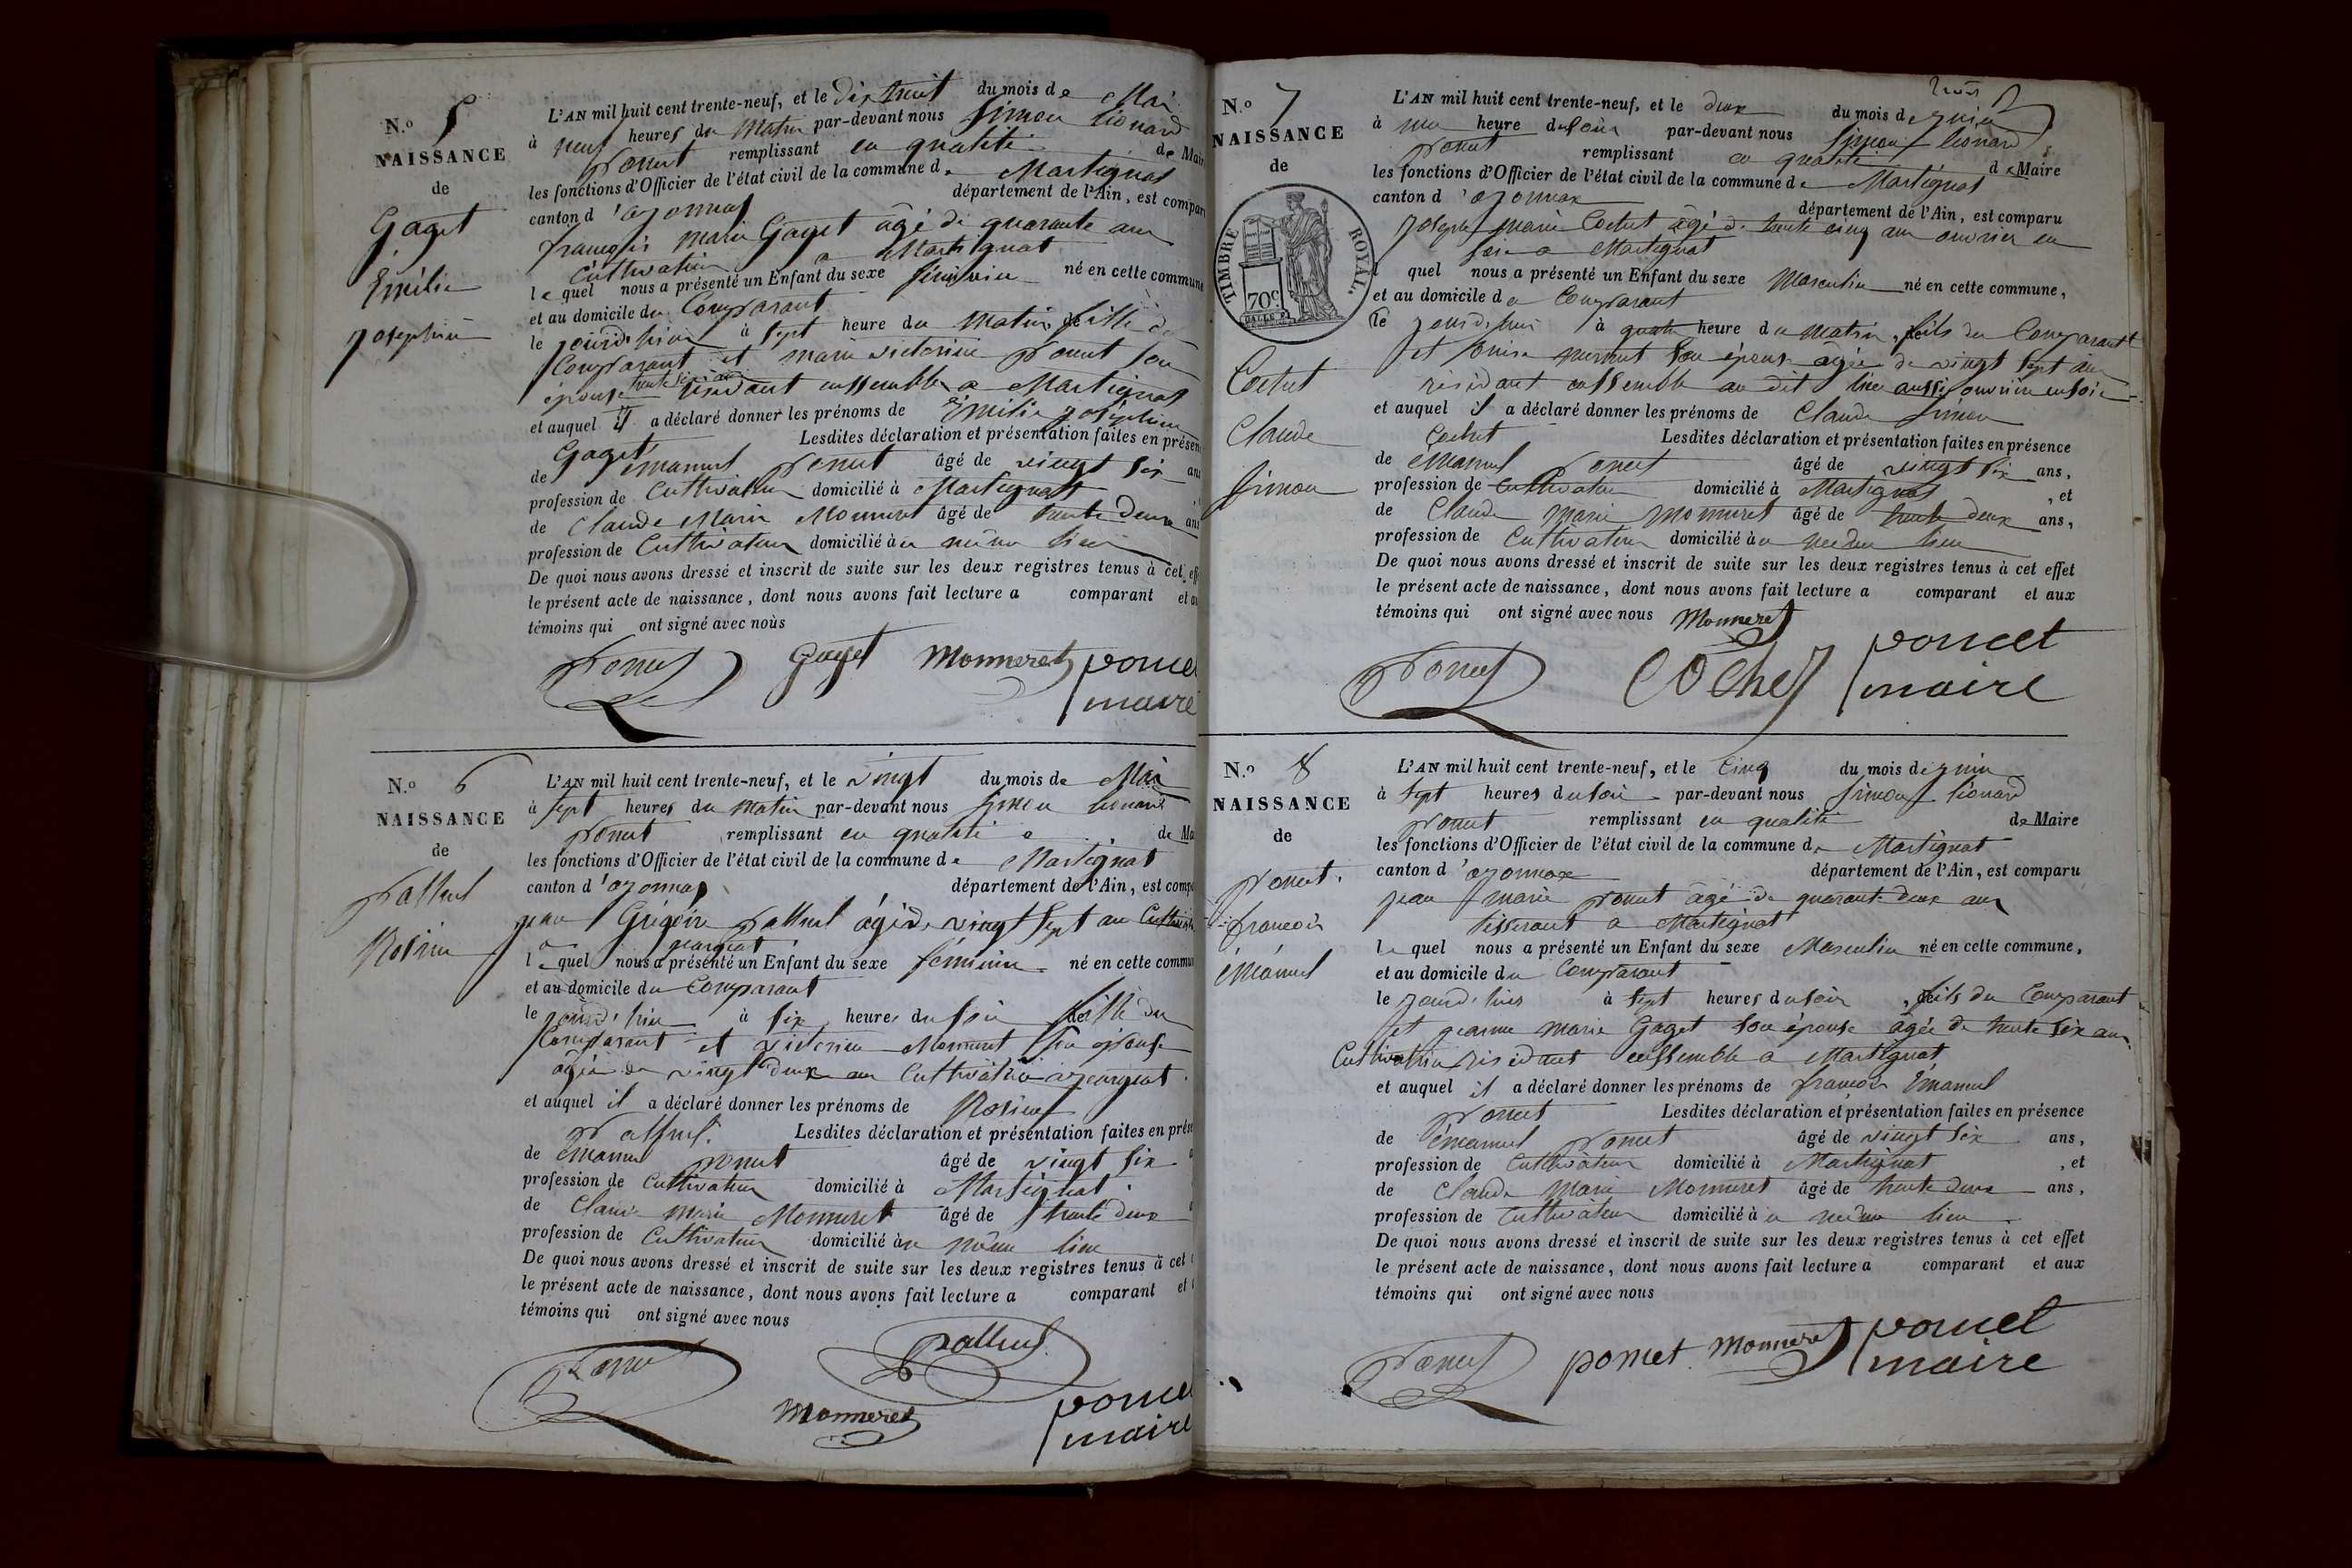 N.o 5
NAISSANCE
de
Gaget
Emélie
josephine
L'AN mil huit cent trente-neuf, et le dix huit du mois de Mai
à neuf heures du Matin par-devant nous Simon léonard
poncet remplissant en qualité de Maire
les fonctions d'Officier de l'état civil de la commune de Martignat
canton d'oyonnax département de l'Ain, est comparu
françois marie Gaget âgé de quarante ans
Cultivateur a Martignat
lequel nous a présenté un Enfant du sexe féminin né en cette commune
et au domicile du Comparant
le jourd'hui à sept heure du matin, fille du
Comparant et marie victorine poncet son
épouse résidant enssemble a Martignat
et auquel il a déclaré donner les prénoms de Emélie joséphine
Gaget Lesdites déclaration et présentation faites en présen
de émanuel poncet âgé de vingt six ans
profession de Cultivateur domicilié à Martignat
de Claude Marie Monneret âgé de trente deux ans
profession de Cultivateur domicilié à u même lieu
De quoi nous avons dressé et inscrit de suite sur les deux registres tenus à cet eff
le présent acte de naissance, dont nous avons fait lecture a comparant et au
témoins qui ont signé avec nous
Poncet Gaget Monneret poncet
maire
N.o 6
NAISSANCE
de
palluel
Rosine
L'AN mil huit cent trente-neuf, et le vingt du mois de Mai
à sept heures du matin par-devant nous Simon léonard
poncet remplissant en qualité de Ma
les fonctions d'Officier de l'état civil de la commune de Martignat
canton d'oyonnax département de l'Ain, est compa
jean Grégoire palluel âgé de vingt sept ans Cultivat
a jeargeat
lequel nous a présenté un Enfant du sexe féminin né en cette commu
et au domicile du Comparant
le jourd'hui à six heures du soir fille du
Comparant et victorine Monneret son épouse
âgée de vingt deux ans Cultivatrice a jeargeat
et auquel il a déclaré donner les prénoms de Rosine
palluel. Lesdites déclaration et présentation faites en prése
de émanuel poncet âgé de vingt six
profession de Cultivateur domicilié à Martignat
de Claude marie Monneret âgé de trente deux
profession de Cultivateur domicilié à u même lieu
De quoi nous avons dressé et inscrit de suite sur les deux registres tenus à cet
le présent acte de naissance, dont nous avons fait lecture a comparant et
témoins qui ont signé avec nous
Poncet palluel
Monneret poncet
maire
N.o 7
NAISSANCE
de
TIMBRE ROYAL.
70c
Cochet
Claude
Simon
trois
L'AN mil huit cent trente-neuf, et le deux du mois de juin
à une heure du soir par-devant nous Simon léonard
poncet remplissant en qualité de Maire
les fonctions d'Officier de l'état civil de la commune de Martignat
canton d'oyonnax département de l'Ain, est comparu
joseph marie Cochet âgé de trente cinq ans ouvrier en
soie a Martignat
quel nous a présenté un Enfant du sexe Masculin né en cette commune,
et au domicile du Comparant
le jourd'hui à quatre heure du matin, fils du Comparant
et louise mermet son épouse âgée de vingt sept ans
résidant enssemble au dit lieu aussi ouvrière en soie
et auquel il a déclaré donner les prénoms de Claude Simon
Cochet Lesdites déclaration et présentation faites en présence
de émanuel poncet âgé de vingt six ans,
profession de Cultivateur domicilié à Martignat, et
de Claude marie monneret âgé de trente deux ans,
profession de Cultivateur domicilié à u même lieu
De quoi nous avons dressé et inscrit de suite sur les deux registres tenus à cet effet
le présent acte de naissance, dont nous avons fait lecture a comparant et aux
témoins qui ont signé avec nous Monneret
Poncet Cochet poncet
maire
N.o 8
NAISSANCE
de
poncet
françois
émanuel
L'AN mil huit cent trente-neuf, et le cinq du mois de juin
à sept heures du soir par-devant nous Simon léonard
poncet remplissant en qualité de Maire
les fonctions d'Officier de l'état civil de la commune de Martignat
canton d'oyonnax département de l'Ain, est comparu
jean marie poncet âgé de quarante deux ans
tisserant a Martignat
lequel nous a présenté un Enfant du sexe Masculin né en cette commune,
et au domicile du Comparant
le jourd'hui à sept heures du soir, fils du Comparant
et jeanne marie Gaget son épouse âgée de trente six ans
Cultivatrice résidant enssemble a Martignat
et auquel il a déclaré donner les prénoms de françois Émanuel
poncet Lesdites déclaration et présentation faites en présence
de émanuel poncet âgé de vingt six ans,
profession de Cultivateur domicilié à Martignat, et
de Claude Marie Monneret âgé de trente deux ans,
profession de Cultivateur domicilié à u même lieu
De quoi nous avons dressé et inscrit de suite sur les deux registres tenus à cet effet
le présent acte de naissance, dont nous avons fait lecture a comparant et aux
témoins qui ont signé avec nous
Poncet poncet Monneret poncet
maire